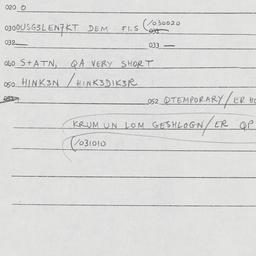 020 0
030 OUSG3LEN7KT DEM FIS (/030020
032 — 033 —
040 S+ATN, QA VERY SHORT
050 HINK3N / HINK3DIK3R
052 QTEMPORARY/ER HO
KRUM UN LOM GESHLOGN/ER QP
(/031010